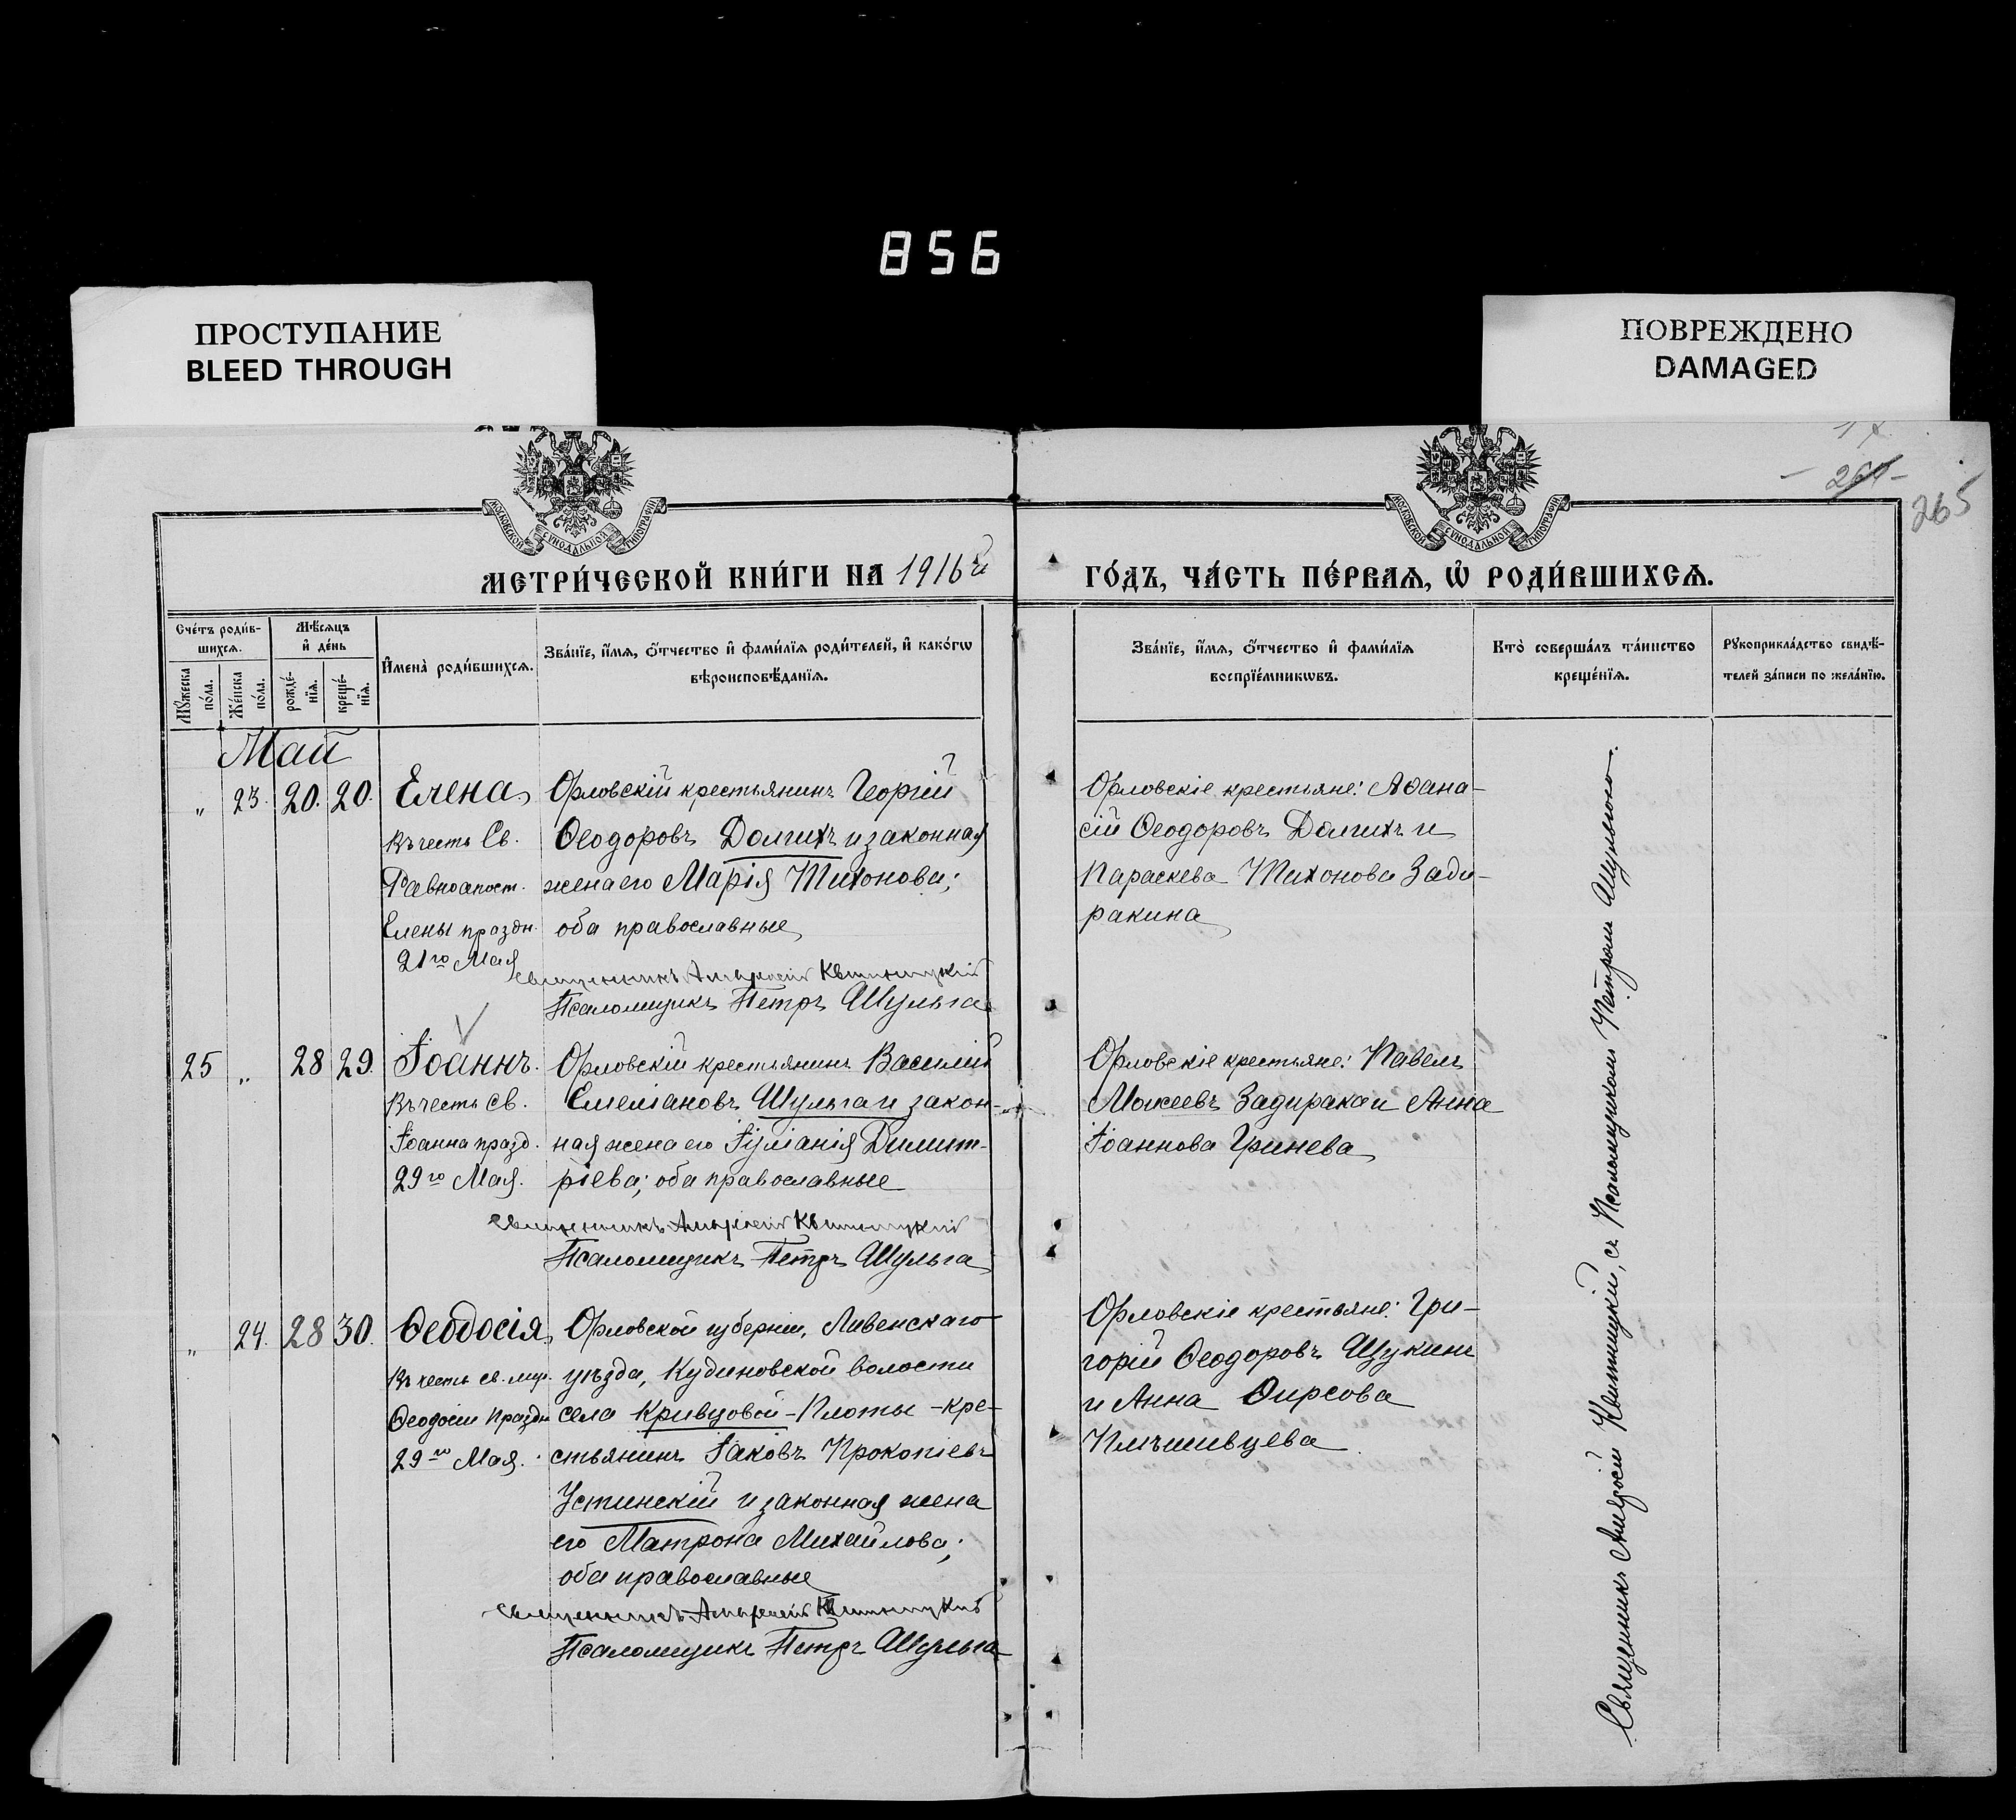 856
ПРОСТУПАНИЕ
BLEED THROUGH
ПОВРЕЖДЕНО
DAMAGED
264
265
МОСКОВСКОЙ СѴНОДАЛЬНОЙ ТИПОГРАФІИ
МОСКОВСКОЙ СѴНОДАЛЬНОЙ ТИПОГРАФІИ
МЕТРИ́ЧЕСКОЙ КНИ́ГИ НА 1916й
ГО́ДЪ, ЧА́СТЬ ПЕ́РВАѦ, Ѡ҆ РОДИ́ВШИХСѦ.
Сче́тъ роди́в-
шихсѧ.
Мꙋ́жеска
по́ла.
Же́нска
по́ла.
Мѣ́сѧцъ
и҆ де́нь
рожде́-
нїѧ.
креще́-
нїѧ.
И҆мена̀ роди́вшихсѧ.
Зва́нїе, и҆́мѧ, ѻ҆́тчество и҆ фами́лїѧ роди́телей, и҆ како́гѡ
вѣроисповѣ́данїѧ.
Зва́нїе, и҆́мѧ, ѻ҆́тчество и҆ фами́лїѧ
воспрїе́мникѡвъ.
Кто̀ соверша́лъ та́инство
креще́нїѧ.
Рꙋкоприкла́дство свидѣ́-
телей за́писи по жела́нїю.
Май
„ 23. 20. 20.
Елена
Въ честь Св.
Равноапост.
Елены праздн.
21го Мая
Орловскій крестьянинъ Георгій
Ѳеодоровъ Долгихъ и законная
жена его Марія Тихонова;
оба православные
Священникъ Амвросій Квитницкій
Псаломщикъ Петръ Шульга
Орловскіе крестьяне: Аѳана-
сій Ѳеодоровъ Долгихъ и
Параскева Тихонова Зади-
ракина
25 „ 28 29.
Іоаннъ.
Въ честь св.
Іоанна празд.
29го Мая.
Орловскій крестьянинъ Василій
Емеліановъ Шульга и закон-
ная жена его Іуліанія Димит-
ріева; оба православные
Священникъ Амвросій Квитницкій
Псаломщикъ Петръ Шульга
Орловскіе крестьяне: Павелъ
Мокеевъ Задирака и Анна
Іоаннова Гринева
„ 24. 28 30.
Ѳеодосія
Въ честь св. муч.
Ѳеодосіи праздн
29го Мая.
Орловской губерніи, Ливенскаго
уѣзда, Кудиновской волости
села Кривцовой-Плоты -кре-
стьянинъ Іаковъ Прокопіевъ
Устинскій и законная жена
его Матрона Михайлова;
оба православные
Священникъ Амвросій Квитницкій
Псаломщикъ Петръ Шульга
Орловскіе крестьяне: Гри-
горій Ѳеодоровъ Щукинъ
и Анна Ѳирсова
Плѣшивцева
Священникъ Амвросій Квитницкій, съ Псаломщикомъ Петромъ Шульгою.